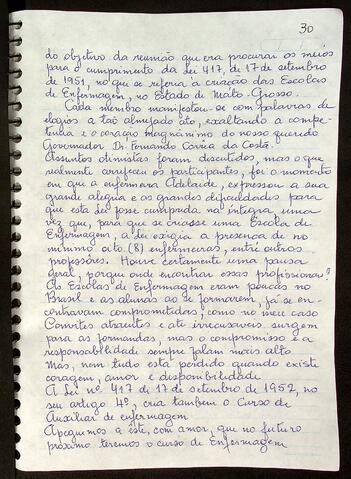 30
do objetivo da reunião que era procurar os meios
para o cumprimento da Lei 417, de 17 de setembro
de 1951, no que se referia a criação das Escolas
de Enfermagem, no Estado de Mato-Grosso.
Cada membro manifestou-se com palavras de
elogios a tão almejado ato, exaltando a compe-
tência e o coração magnânimo do nosso querido
Governador Dr. Fernando Corrêa da Costa.
Assuntos otimistas foram discutidos, mas o que
realmente arrefeceu os participantes, foi o momento
em que a enfermeira Adelaide, expressou a sua
grande alegria e as grandes dificuldades para
que esta Lei fosse cumprida na íntegra uma
vez que, para que se criasse uma Escola de
Enfermagem, a lei exigia a presença de no
mínimo oito (8) enfermeiras, entre outros
professores. Houve certamente uma pausa
geral, porque onde encontrar essas profissionais?
As Escolas de Enfermagem eram poucas no
Brasil e as alunas ao se formarem, já se en-
contravam comprometidas, como no meu caso
Convites atraentes e até irrecusáveis surgem
para as formandas, mas o compromisso e a
responsabilidade sempre falam mais alto
Mas, nem tudo está perdido quando existe
coragem, amor e disponibilidade
A Lei nº 417 de 17 de setembro de 1952, no
seu artigo 4º, cria também o Curso de
Auxiliar de enfermagem
Apeguemos a êste, com amor, que no futuro
próximo teremos o curso de Enfermagem